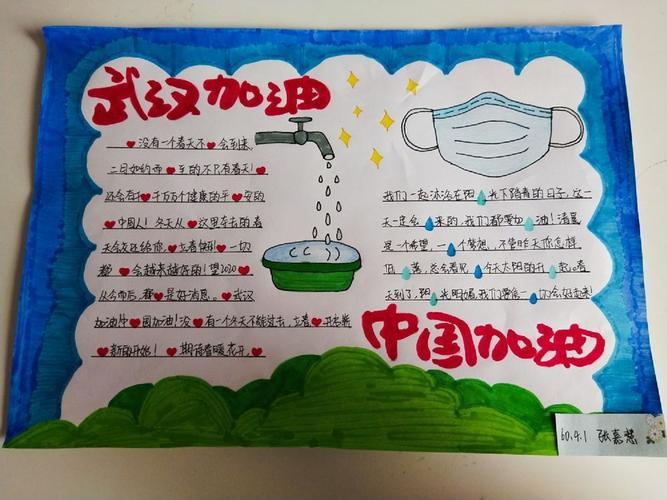 武汉加油
没有一个春天不会到来,
二月如约而至的不只有春天!
还会有千万万个健康的平安的
中国人!冬天从这里夺去的春
天会交还给你,立春快到一切
都会越来越好的!望2020
从今而后,都是好消息。武汉
加油!中国加油!没有一个冬天不能过去,立春开启崭
新的开始!期待春暖花开,
我们一起沐浴在阳光下踏青的日子,这一
天一定会来的,我们都要加油!清晨
是一个希望,一个梦想,不管昨天你怎样
低落,总会看见今天太阳的升起。春
天到了,阳光明媚,我们坚信一切会好起来!
中国加油
60.4.1 张嘉慧